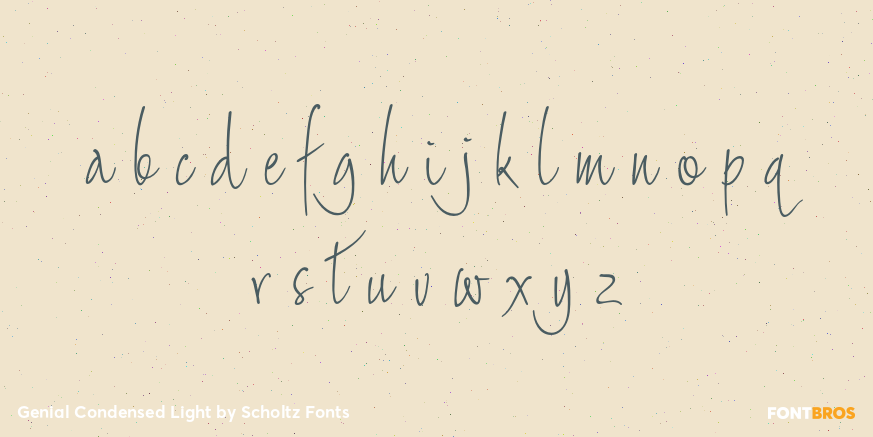 a b c d e f g h i j k l m n o p q
r s t u v w x y z
Genial Condensed Light by Scholtz Fonts
FONTBROS